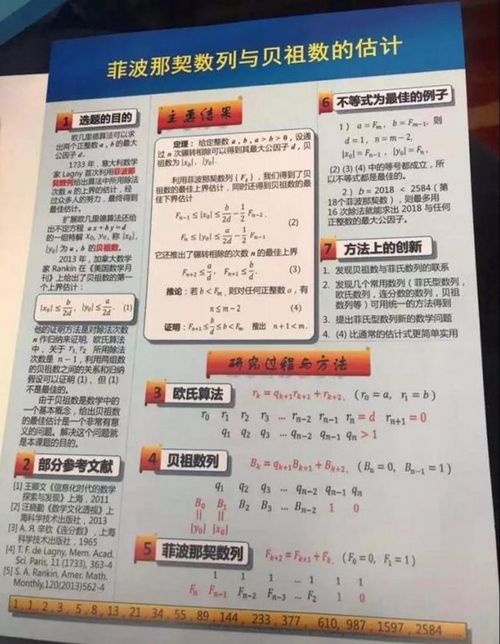 菲波那契数列与贝祖数的估计
1 选题的目的
欧几里德算法可以求
出两个正整数 a , b 的最大
公因子 d 。
1733 年，意大利数学
家 Lagny 首次利用菲波那
契数列给出算法中所用除法
次数 n 的上界的估计，经
过众多人的努力，最终得到
最佳估计。
扩展欧几里德算法还给
出不定方程 ax+by=d
的一组特解 x₀, y₀, 称 |x₀|,
|y₀| 为 a , b 的贝祖数。
2013 年，加拿大数学
家 Rankin 在《美国数学月
刊》上给出了贝祖数的第一
个上界估计：
|x₀| ≤ b/2d, |y₀| ≤ a/2d (1)
他的证明方法是对除法次数
n 作归纳来证明. 欧氏算法
中，关于 r₁, r₂ 所用除法
次数是 n − 1，利用两组数
的贝祖数之间的关系和归纳
假设可以证明 (1)，但 (1)
不是最佳的。
由于贝祖数是数学中的
一个基本概念，给出贝祖数
的最佳估计是一个非常有意
义的问题。解决这个问题就
是本课题的目的。
2 部分参考文献
[1] 王卿文《信息化时代的数学
探索与发现》上海，2011
[2] 汪晓勤《数学文化透视》上
海科学技术出版社，2013
[3] А. Я. 辛钦《连分数》，上海
科学技术出版社，1965
[4] T. F. de Lagny, Mem. Acad.
Sci. Paris, 11 (1733), 363-4
[5] S. A. Rankin, Amer. Math.
Monthly,120(2013)562-4
主要结果
定理：给定整数 a, b, a > b > 0，设通
过 n 次辗转相除可以得到其最大公因子 d，贝
祖数为 |x₀|, |y₀|.
利用菲波那契数列 { Fₖ }，我们得到了贝
祖数的最佳上界估计，同时还得到贝祖数的最
佳下界估计
Fₙ₋₁ ≤ |x₀| ≤ b/2d − 1/2 Fₙ₋₂,
(2)
Fₙ ≤ |y₀| ≤ a/2d − 1/2 Fₙ₋₁.
它还推出了辗转相除的次数 n 的最佳上界
Fₙ₊₂ ≤ a/d, Fₙ₊₁ ≤ b/d. (3)
推论：若 b < Fₘ，则对任正整数 a，有
n ≤ m − 2 (4)
证明：Fₙ₊₁ ≤ b/d ≤ b < Fₘ 推出 n + 1 < m.
6 不等式为最佳的例子
1 ) a = Fₘ, b = Fₘ₋₁, 则
d = 1, n = m − 2,
|x₀| = Fₙ₋₁, |y₀| = Fₙ.
(2) (3) (4) 中的等号都成立，所
以不等式都是最佳的。
2 ) b = 2018 < 2584 ( 第
18个菲波那契数 )，则最多用
16 次除法就能求出 2018 与任何
正整数的最大公因子。
7 方法上的创新
1. 发现贝祖数与菲氏数列的联系
2. 发现几个常用数列 ( 菲氏型数列，
欧氏数列，连分数的数列，贝祖
数列等 ) 可用统一的方法得到
3. 提出菲氏型数列新的数学问题
4. (4) 比通常的估计式更简单实用
研究过程与方法
3 欧氏算法 rₖ = qₖ₊₁rₖ₊₁ + rₖ₊₂, ( r₀ = a, r₁ = b )
r₀ r₁ r₂ r₃ … rₙ₋₂ rₙ₋₁ rₙ = d rₙ₊₁ = 0
q₁ q₂ q₃ … qₙ₋₂ qₙ₋₁ qₙ > 1
4 贝祖数列 Bₖ = qₖ₊₁Bₖ₊₁ + Bₖ₊₂, ( Bₙ = 0, Bₙ₋₁ = 1 )
q₁ q₂ q₃ … qₙ₋₂ qₙ₋₁ qₙ
B₀ B₁ B₂ B₃ … Bₙ₋₂ 1 0
|| ||
|y₀| |x₀|
5 菲波那契数列 Fₖ₊₂ = Fₖ₊₁ + Fₖ, ( F₀ = 0, F₁ = 1 )
1 1 1 … 1 1 1
Fₙ Fₙ₋₁ Fₙ₋₂ Fₙ₋₃ … F₂ 1 0
1, 1, 2, 3, 5, 8, 13, 21, 34, 55, 89, 144, 233, 377, 610, 987, 1597, 2584